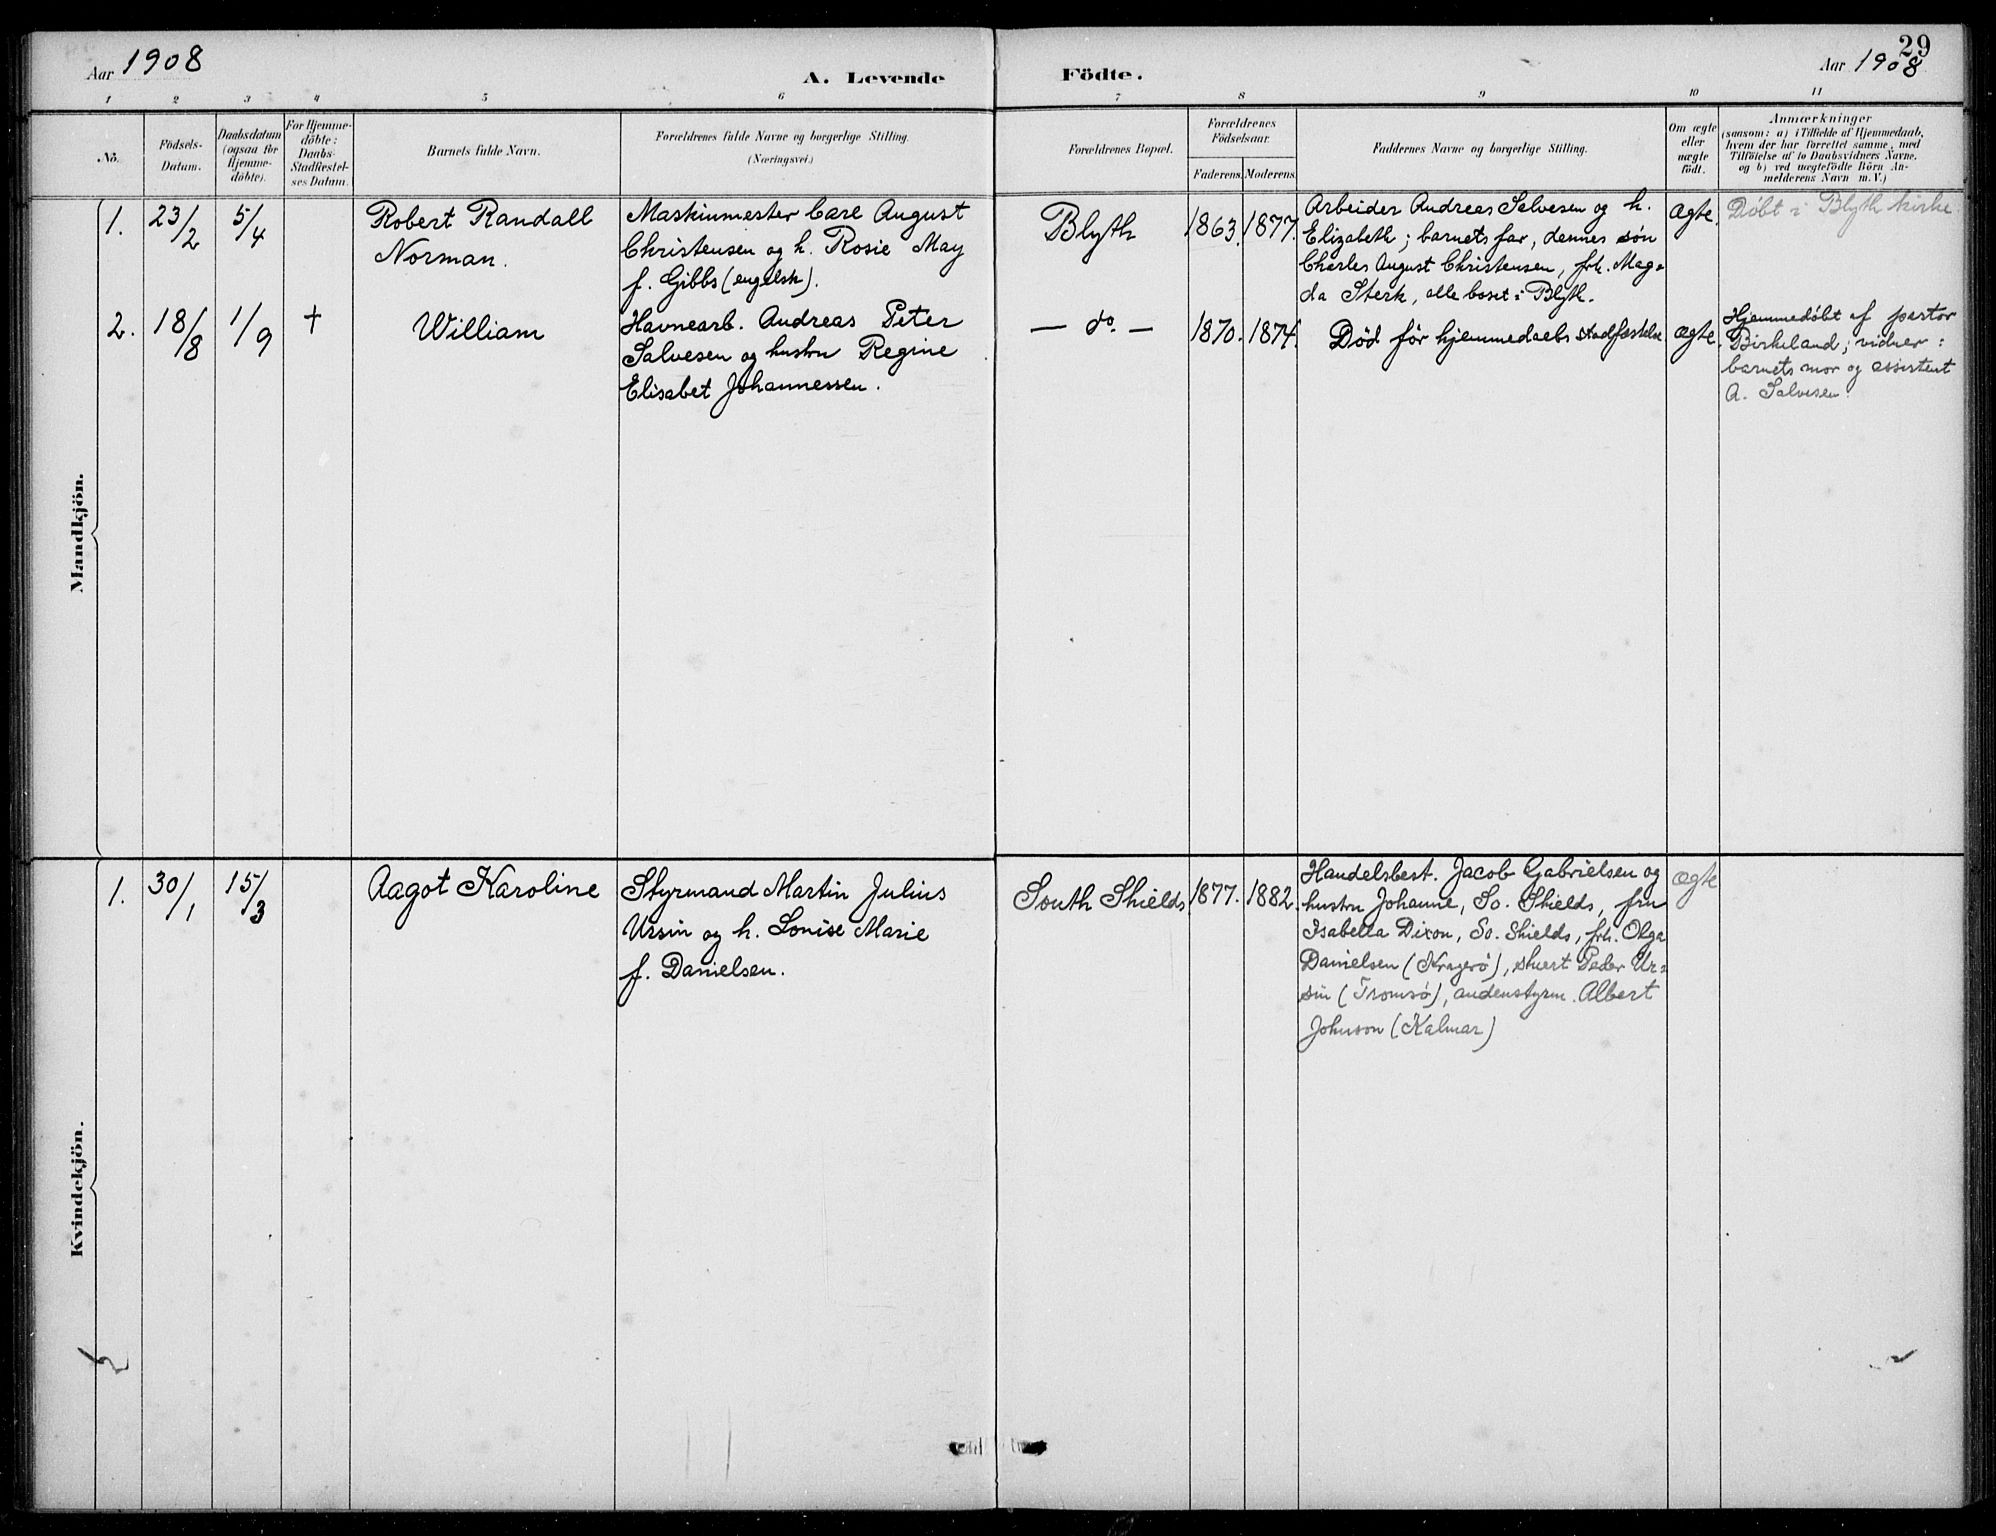 29
Aar 1908
A. Levende Födte.
Aar 1908
1 2 3 4 5 6 7 8 9 10 11
No.
Födsels-
Datum.
Daabsdatum
(ogsaa for
Hjemme-
döbte).
For Hjemme-
döbte:
Daabs-
Stadfæstel-
ses Datum.
Barnets fulde Navn.
Forældrenes fulde Navne og borgerlige Stilling.
(Næringsvei.)
Forældrenes Bopæl.
Forældrenes
Födselsaar.
Faderens.
Moderens.
Faddernes Navne og borgerlige Stilling.
Om ægte
eller
uægte
födt.
Anmærkninger
(saasom: a) i Tilfælde af Hjemmedaab,
hvem der har forrettet samme, med
Tilföielse af to Daabsvidners Navne,
og b) ved uægtefödte Börn An-
melderens Navn m. V.)
Mandkjön.
1.
23/2
5/4
Robert Randall
Norman.
Maskinmester Carl August
Christensen og h. Rosie May
f. Gibbs (engelsk).
Blyth
1863.
1877.
Arbeider Andreas Salvesen og h.
Elizabeth; barnets far, dennes søn
Charles August Christensen, frk. Mag-
da Sterk, alle boset i Blyth.
ægte.
Døbt i Blyth kirke.
2.
18/8
1/9
+
William
Havnearb. Andreas Peter
Salvesen og hustru Regine
Elisabet Johannessen.
— do. —
1870.
1874.
Død før hjemmedaabs stadfæstelse
ægte.
Hjemmedøbt af pastor
Birkeland; vidner:
barnets mor og assistent
A. Salvesen.
Kvindekjön.
1.
30/1
15/3
Aagot Karoline
Styrmand Martin Julius
Ursin og h. Lovise Marie
f. Danielsen.
South Shields
1877.
1882.
Handelsbest. Jacob Gabrielsen og
hustru Johanne, So. Shields, fru
Isabella Dixon, So. Shields, frk. Olga
Danielsen (Kragerö), stuert Peder Ur-
sin (Tromsö), andenstyrm. Albert
Johnson (Kalmar)
ægte